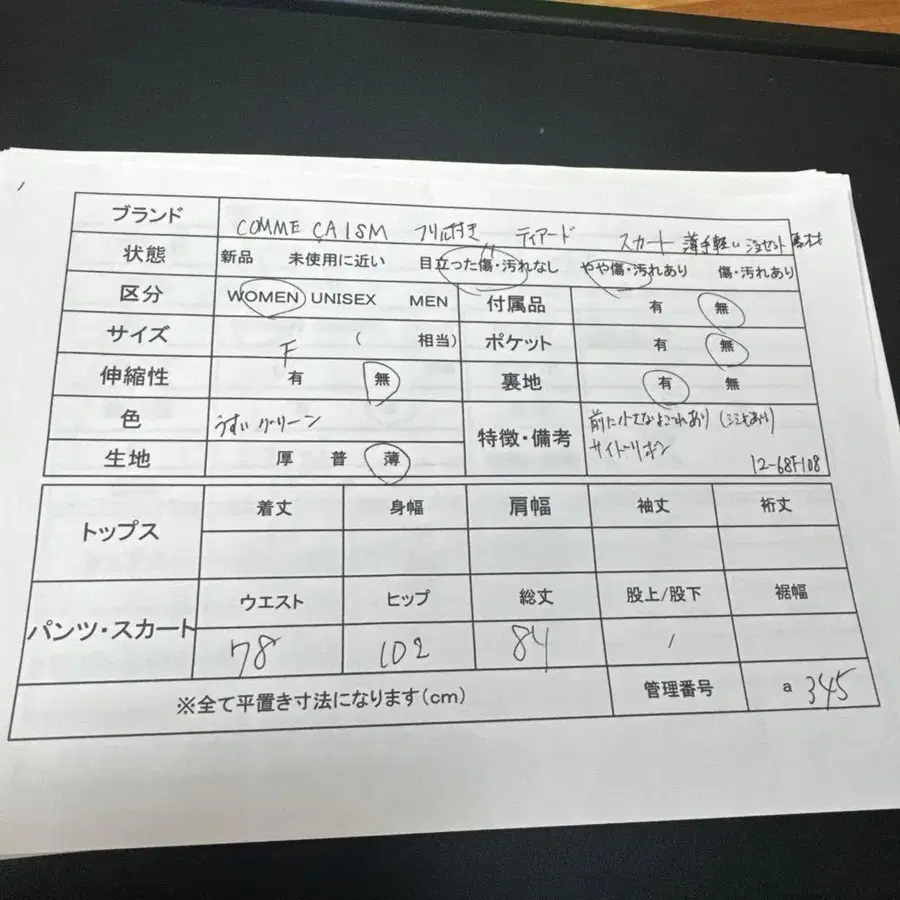 ブランド COMME ÇA ISM フリル付き ティアード スカート 薄手軽い 素材
状態 新品 未使用に近い 目立った傷・汚れなし やや傷・汚れあり 傷・汚れあり
区分 WOMEN UNISEX MEN 付属品 有 無
サイズ F ( 相当) ポケット 有 無
伸縮性 有 無 裏地 有 無
色 うすいグリーン 特徴・備考 前に小さなよごれあり (シミあり)
サイドリボン
生地 厚 普 薄 12-68F108
トップス 着丈 身幅 肩幅 袖丈 裄丈
パンツ・スカート ウエスト ヒップ 総丈 股上/股下 裾幅
78 102 84 /
※全て平置き寸法になります(cm) 管理番号 a 345